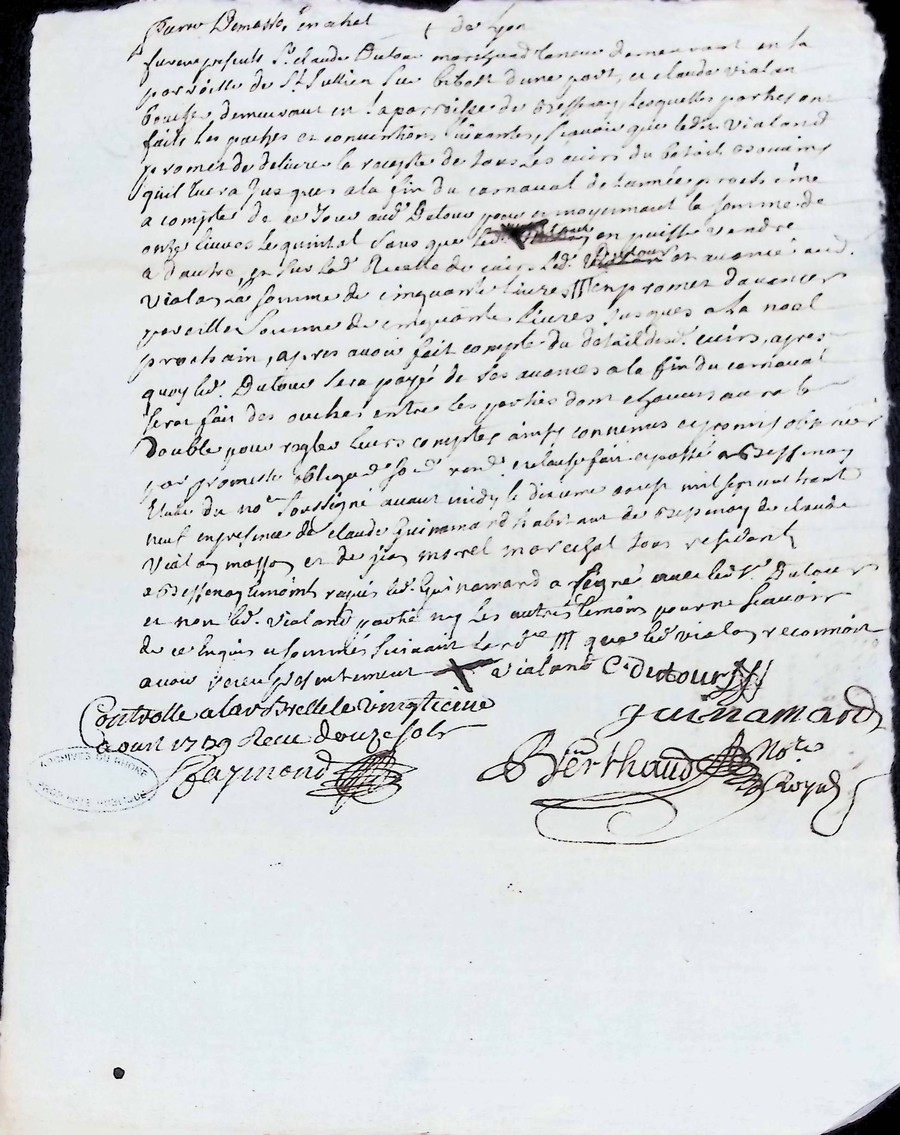 Pierre
de Lyon
furent presents Sr. claude Dutour marchand taneur demeurant en la
paroisse de St Jullien sur bibost dune part, et claude vialan
boucher demeurant en la paroisse de Bessenay, lesquelles parties ont
faits les paches et conventions suivantes, sçavoir que ledit vialand
promet de delivrer la recepte de tous les cuirs du betail
quil tuera jusques a la fin du carnaval de lannée prochaine
a compter de ce jour aud. Dutour moyennant la somme de
onze livres le quintal sans que led. en puisse vendre
a dautre, et sur lad. Recette de cuirs led. Dutour en avance aud.
vialan la somme de cinquante livres et promet davancer
pareille somme de cinquante livres jusques a la noel
prochain, apres avoir fait compte du detail desd. cuirs, apres
quoy led. Dutour sera payé de ses avances a la fin du carnaval
sera fait des ouches entre les parties dont chacun aura le
double pour regler leurs comptes ainsy convenus et promis observer
par promesse oblige de fait et passé a Bessenay
Etude du nore. soussigné avant midy le dixieme aoust mil sept cent trente
neuf en presence de claude Guinamard habitant de Bessenay de claude
vialan masson et de jean morel marechal tous residant
a Bessenay temoins requis led. Guinamard a signé avec led. Sr. Dutour
et non led. vialand partie ny les autres temoins pour ne scavoir
de ce Enquis et sommés suivant lordce. que led. vialan reconnoit
avoir receu presentement vialand C. dutour
Controlle a larbrelle le vingtieme
aoust 1739 Receu douze sols
guinamard
faymond
Berthaud Nore.
Royal
ARCHIVES DU RHONE